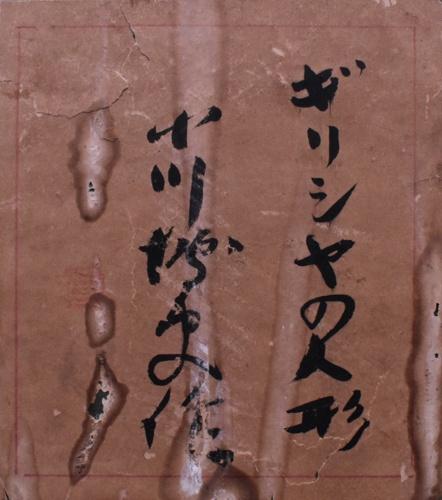 ギリシヤの人形
小川博史作